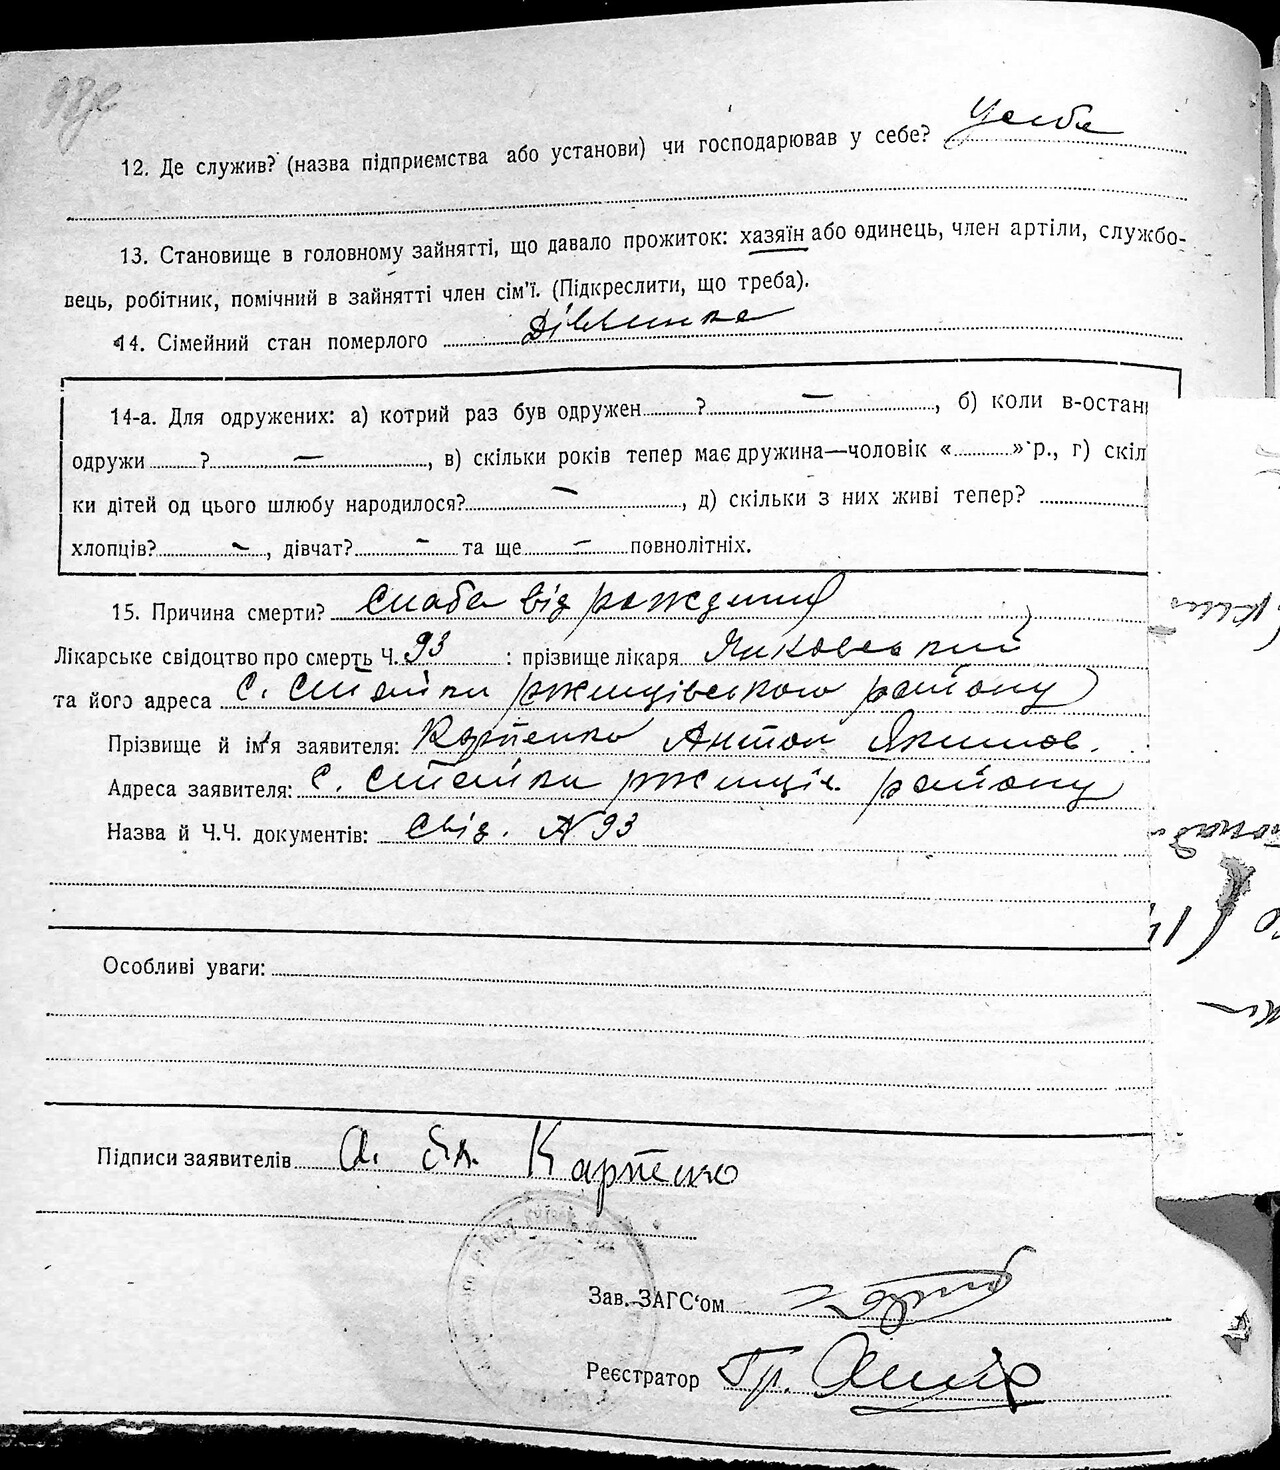 98зв
12. Де служив? (назва підприємства або установи) чи господарював у себе? У себе
13. Становище в головному зайнятті, що давало прожиток: хазяїн або одинець, член артіли, службо-
вець, робітник, помічний в зайнятті член сім'ї. (Підкреслити, що треба).
14. Сімейний стан померлого Дівчинка
14-а. Для одружених: а) котрий раз був одружен ? —, б) коли в-остан
одружи ? —, в) скільки років тепер має дружина—чоловік « » р., г) скіл
ки дітей од цього шлюбу народилося? —, д) скільки з них живі тепер?
хлопців? —, дівчат? — та ще — повнолітніх.
15. Причина смерти? Слаба від рождения
Лікарське свідоцтво про смерть Ч. 93 : прізвище лікаря Янковський
та його адреса с. Стайки ржищівського району
Прізвище й ім'я заявителя: Карпенко Антон Якимов.
Адреса заявителя: с. Стайки ржищів. району
Назва й Ч.Ч. документів: Свід. № 93
Особливі уваги:
Підписи заявителів А. Як. Карпенко
Зав. ЗАГС'ом
Реєстратор Гр.